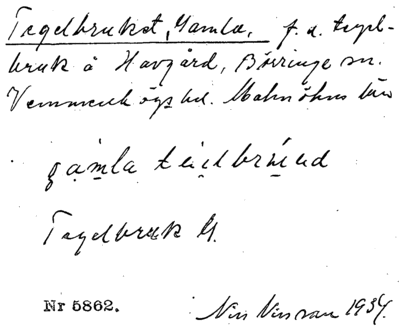 Tegelbruket, Gamla, f. d. tegel-
bruk å Havgård, Börringe sn.
Vemmenhögs hd. Malmöhus län
gamla
Tegelbruk G.
Nr 5862.
Nils Nilsson 1934.